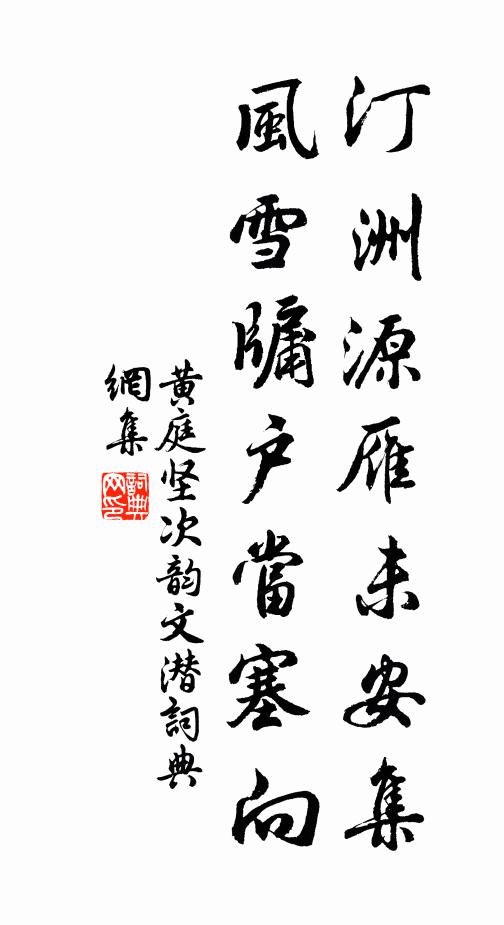 汀洲源雁未安集
風雪牖户當塞向
黄庭坚次韵文潜詞典
網集
詞典
网印